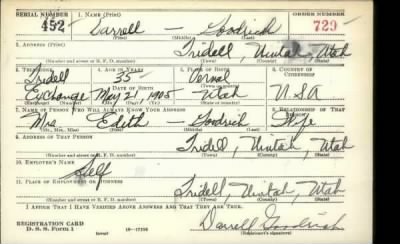 SERIAL NUMBER 1. NAME (Print) ORDER NUMBER
452 Darrell — Goodrich 729
(First) (Middle) (Last)
2. ADDRESS (Print)
Tridell, Uintah, Utah
(Number and street or R. F. D. number) (Town) (County) (State)
3. TELEPHONE 4. AGE IN YEARS 5. PLACE OF BIRTH 6. COUNTRY OF CITIZENSHIP
Tridell 35 Vernal
DATE OF BIRTH
Exchange May 21, 1905 Utah U.S.A
7. NAME OF PERSON WHO WILL ALWAYS KNOW YOUR ADDRESS 8. RELATIONSHIP OF THAT PERSON
Mrs Edith Goodrich Wife
(Mr., Mrs., Miss) (First) (Middle) (Last)
9. ADDRESS OF THAT PERSON
Tridell, Uintah, Utah
(Number and street or R. F. D. number) (Town) (County) (State)
10. EMPLOYER'S NAME
Self
11. PLACE OF EMPLOYMENT OR BUSINESS
Tridell Uintah, Utah
(Number and street or R. F. D. number) (Town) (County) (State)
I AFFIRM THAT I HAVE VERIFIED ABOVE ANSWERS AND THAT THEY ARE TRUE.
REGISTRATION CARD
D. S. S. Form 1 (over) Darrell Goodrich
(Registrant's signature)